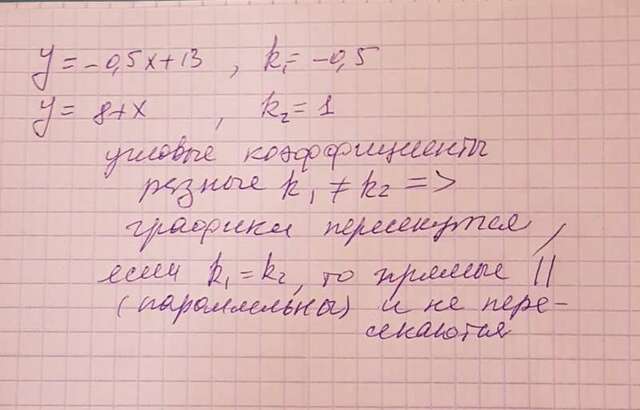 y = -0,5x+13 , k₁= -0,5
y = 8+x , k₂= 1
угловые коэффициенты
разные k₁ ≠ k₂ =>
графики пересекутся,
если k₁ = k₂, то прямые ||
(параллельны) и не пере-
секаются